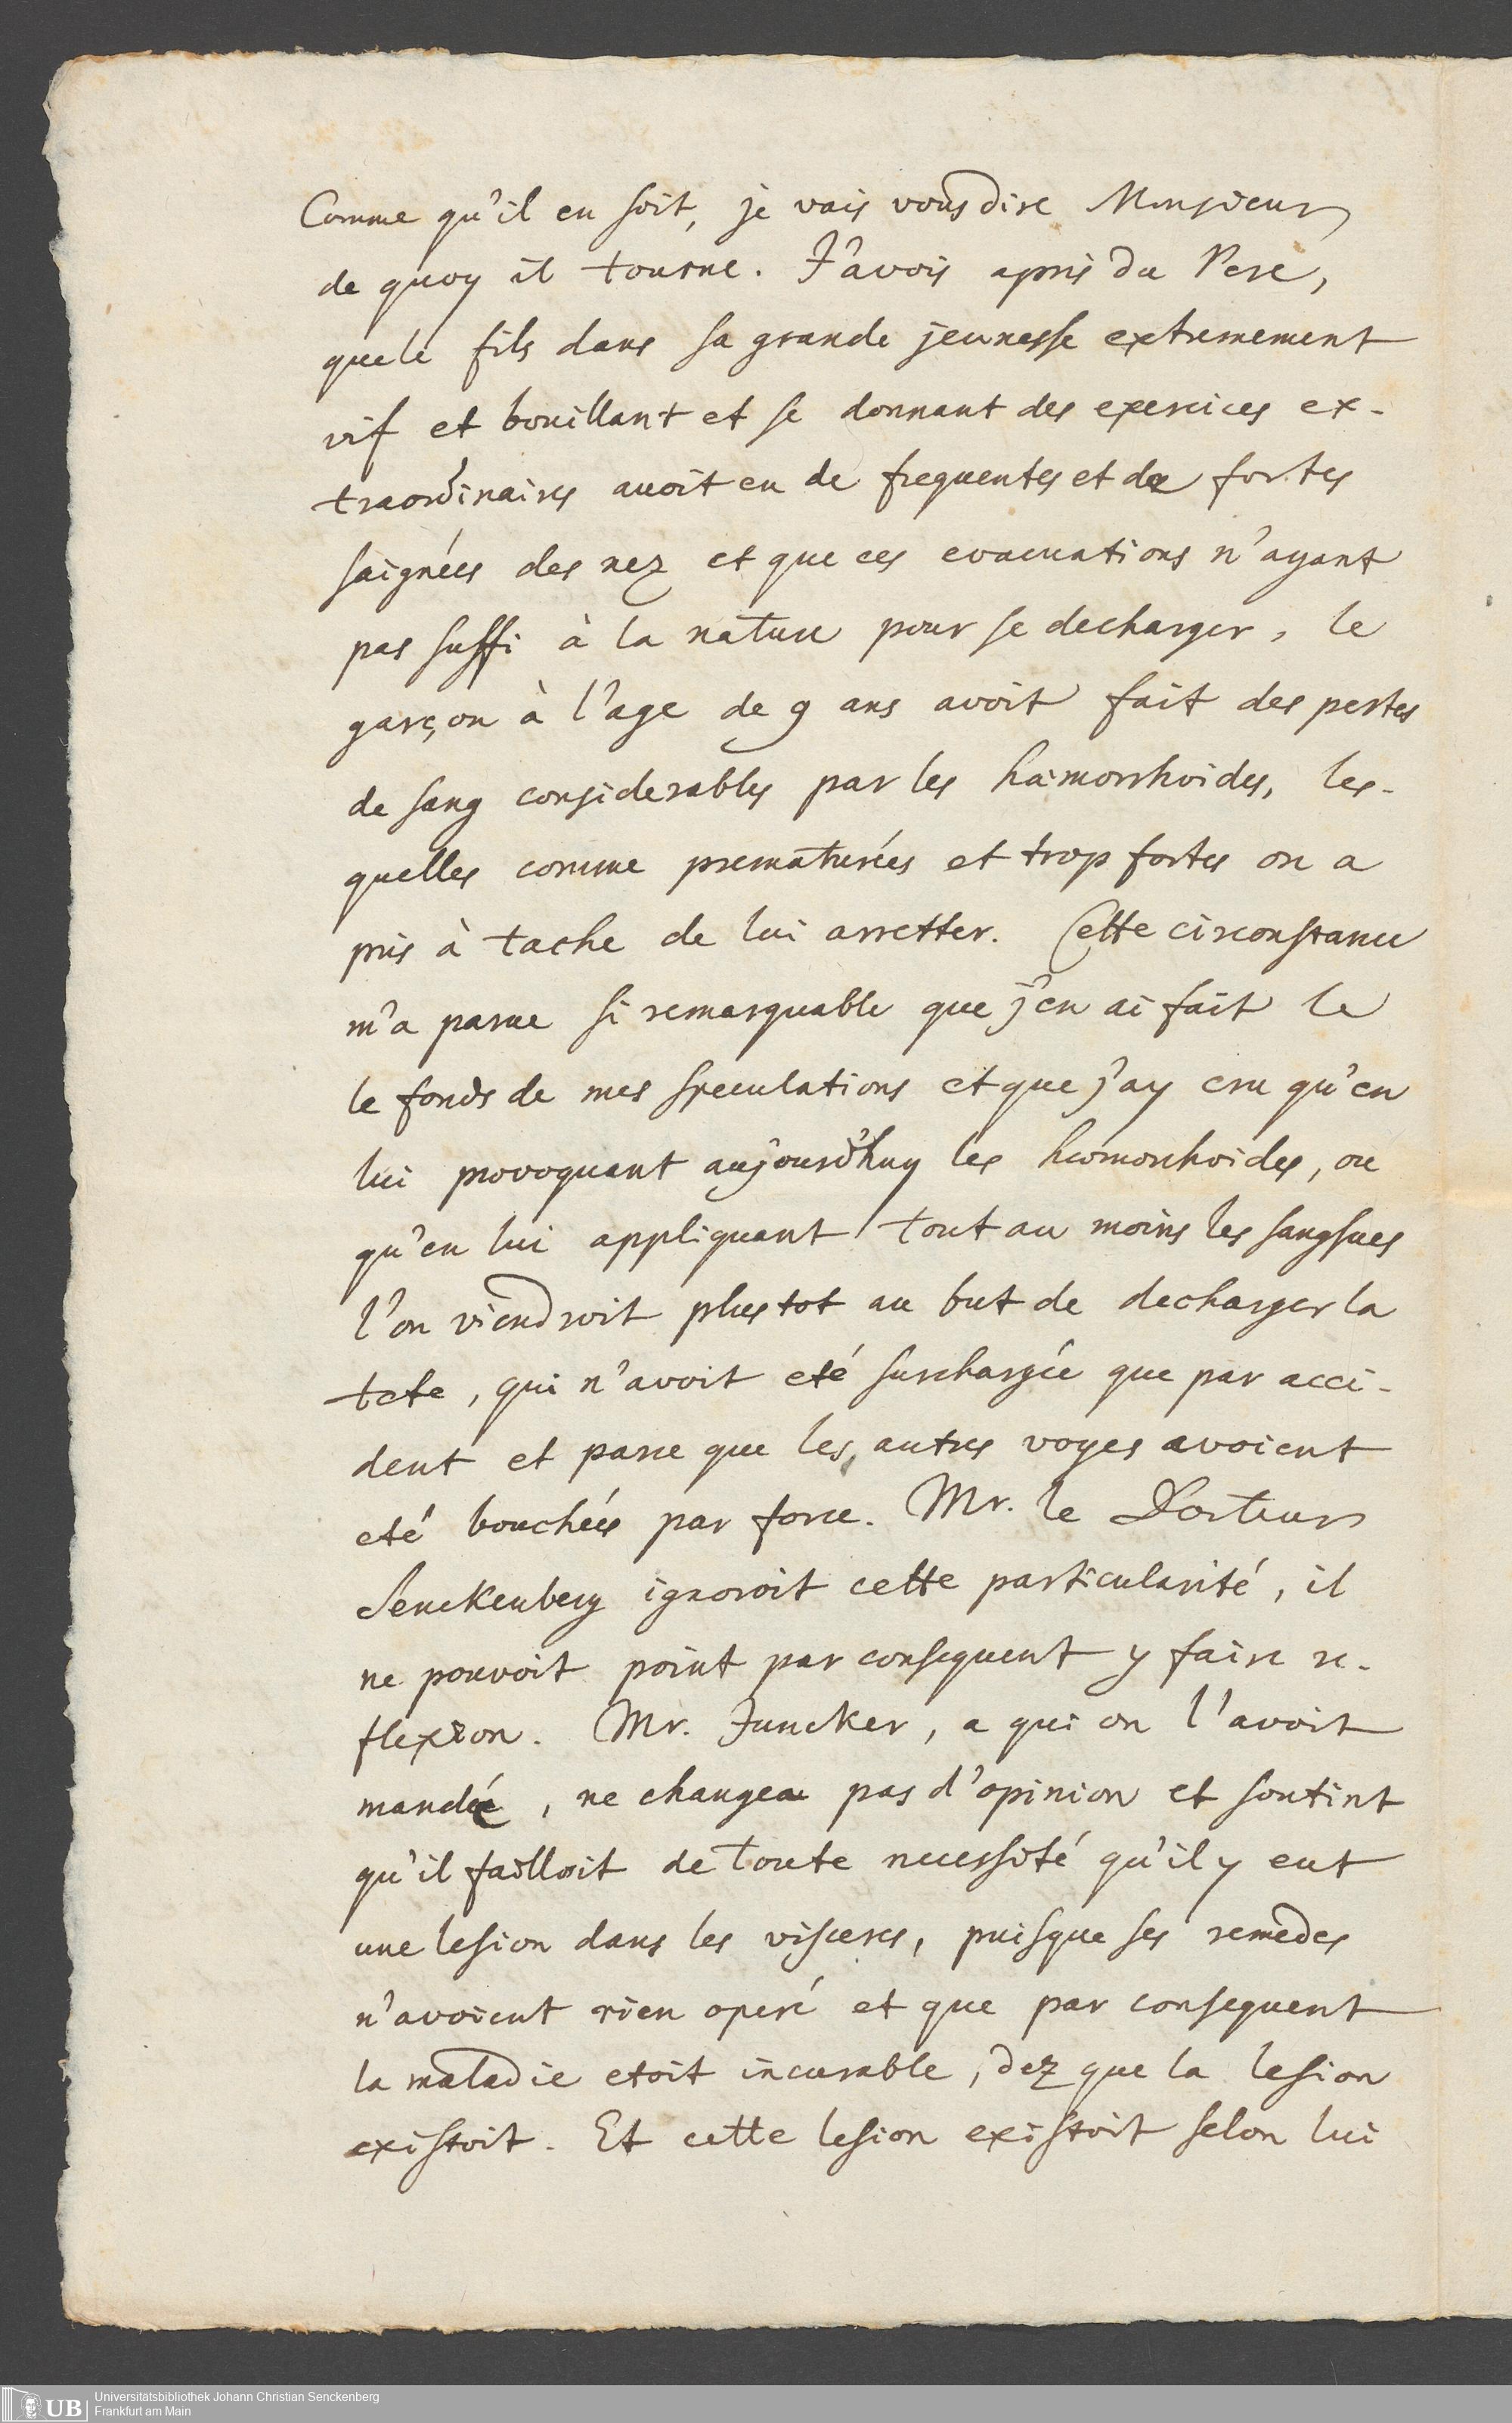 Comme qu'il en soit, je vais vous dire Monsieur
de quoy il tourne. J'avois apris du Pere,
que le fils dans sa grande jeunesse extremement
vif et bouillant et se donnant des exercices ex-
traordinaires avoit eu de frequentes et de fortes
saignées des nez et que ces evacuations n'ayant
pas suffi à la nature pour se decharger, le
garçon à l'age de 9 ans avoit fait des pertes
de sang considerables par les hæmorrhoides, les-
quelles comme prematurées et trop fortes on a
pris à tache de lui arretter. Cette circonstance
m'a parue si remarquable que j'en ai fait le
le fonds de mes speculations et que j'ay cru qu'en
lui provoquant aujourd'huy les hæmorrhoides, ou
qu'en lui appliquant tout au moins les sangsues
l'on viendroit plustot au but de decharger la
tete, qui n'avoit eté surchargée que par acci-
dent et parce que les autres voyes avoient
eté bouchées par force. Mr. le Docteur
Senckenberg ignoroit cette particularité, il
ne pouvoit point par consequent y faire re-
flexion. Mr. Juncker, a qui on l'avoit
mandée, ne changea pas d'opinion et soutint
qu'il failloit de toute necessité qu'il y eut
une lesion dans les visceres, puisque ses remedes
n'avoient rien operé et que par consequent
la maladie etoit incurable, dez que la lesion
existoit. Et cette lesion existoit selon lui
UB
Universitätsbibliothek Johann Christian Senckenberg
Frankfurt am Main